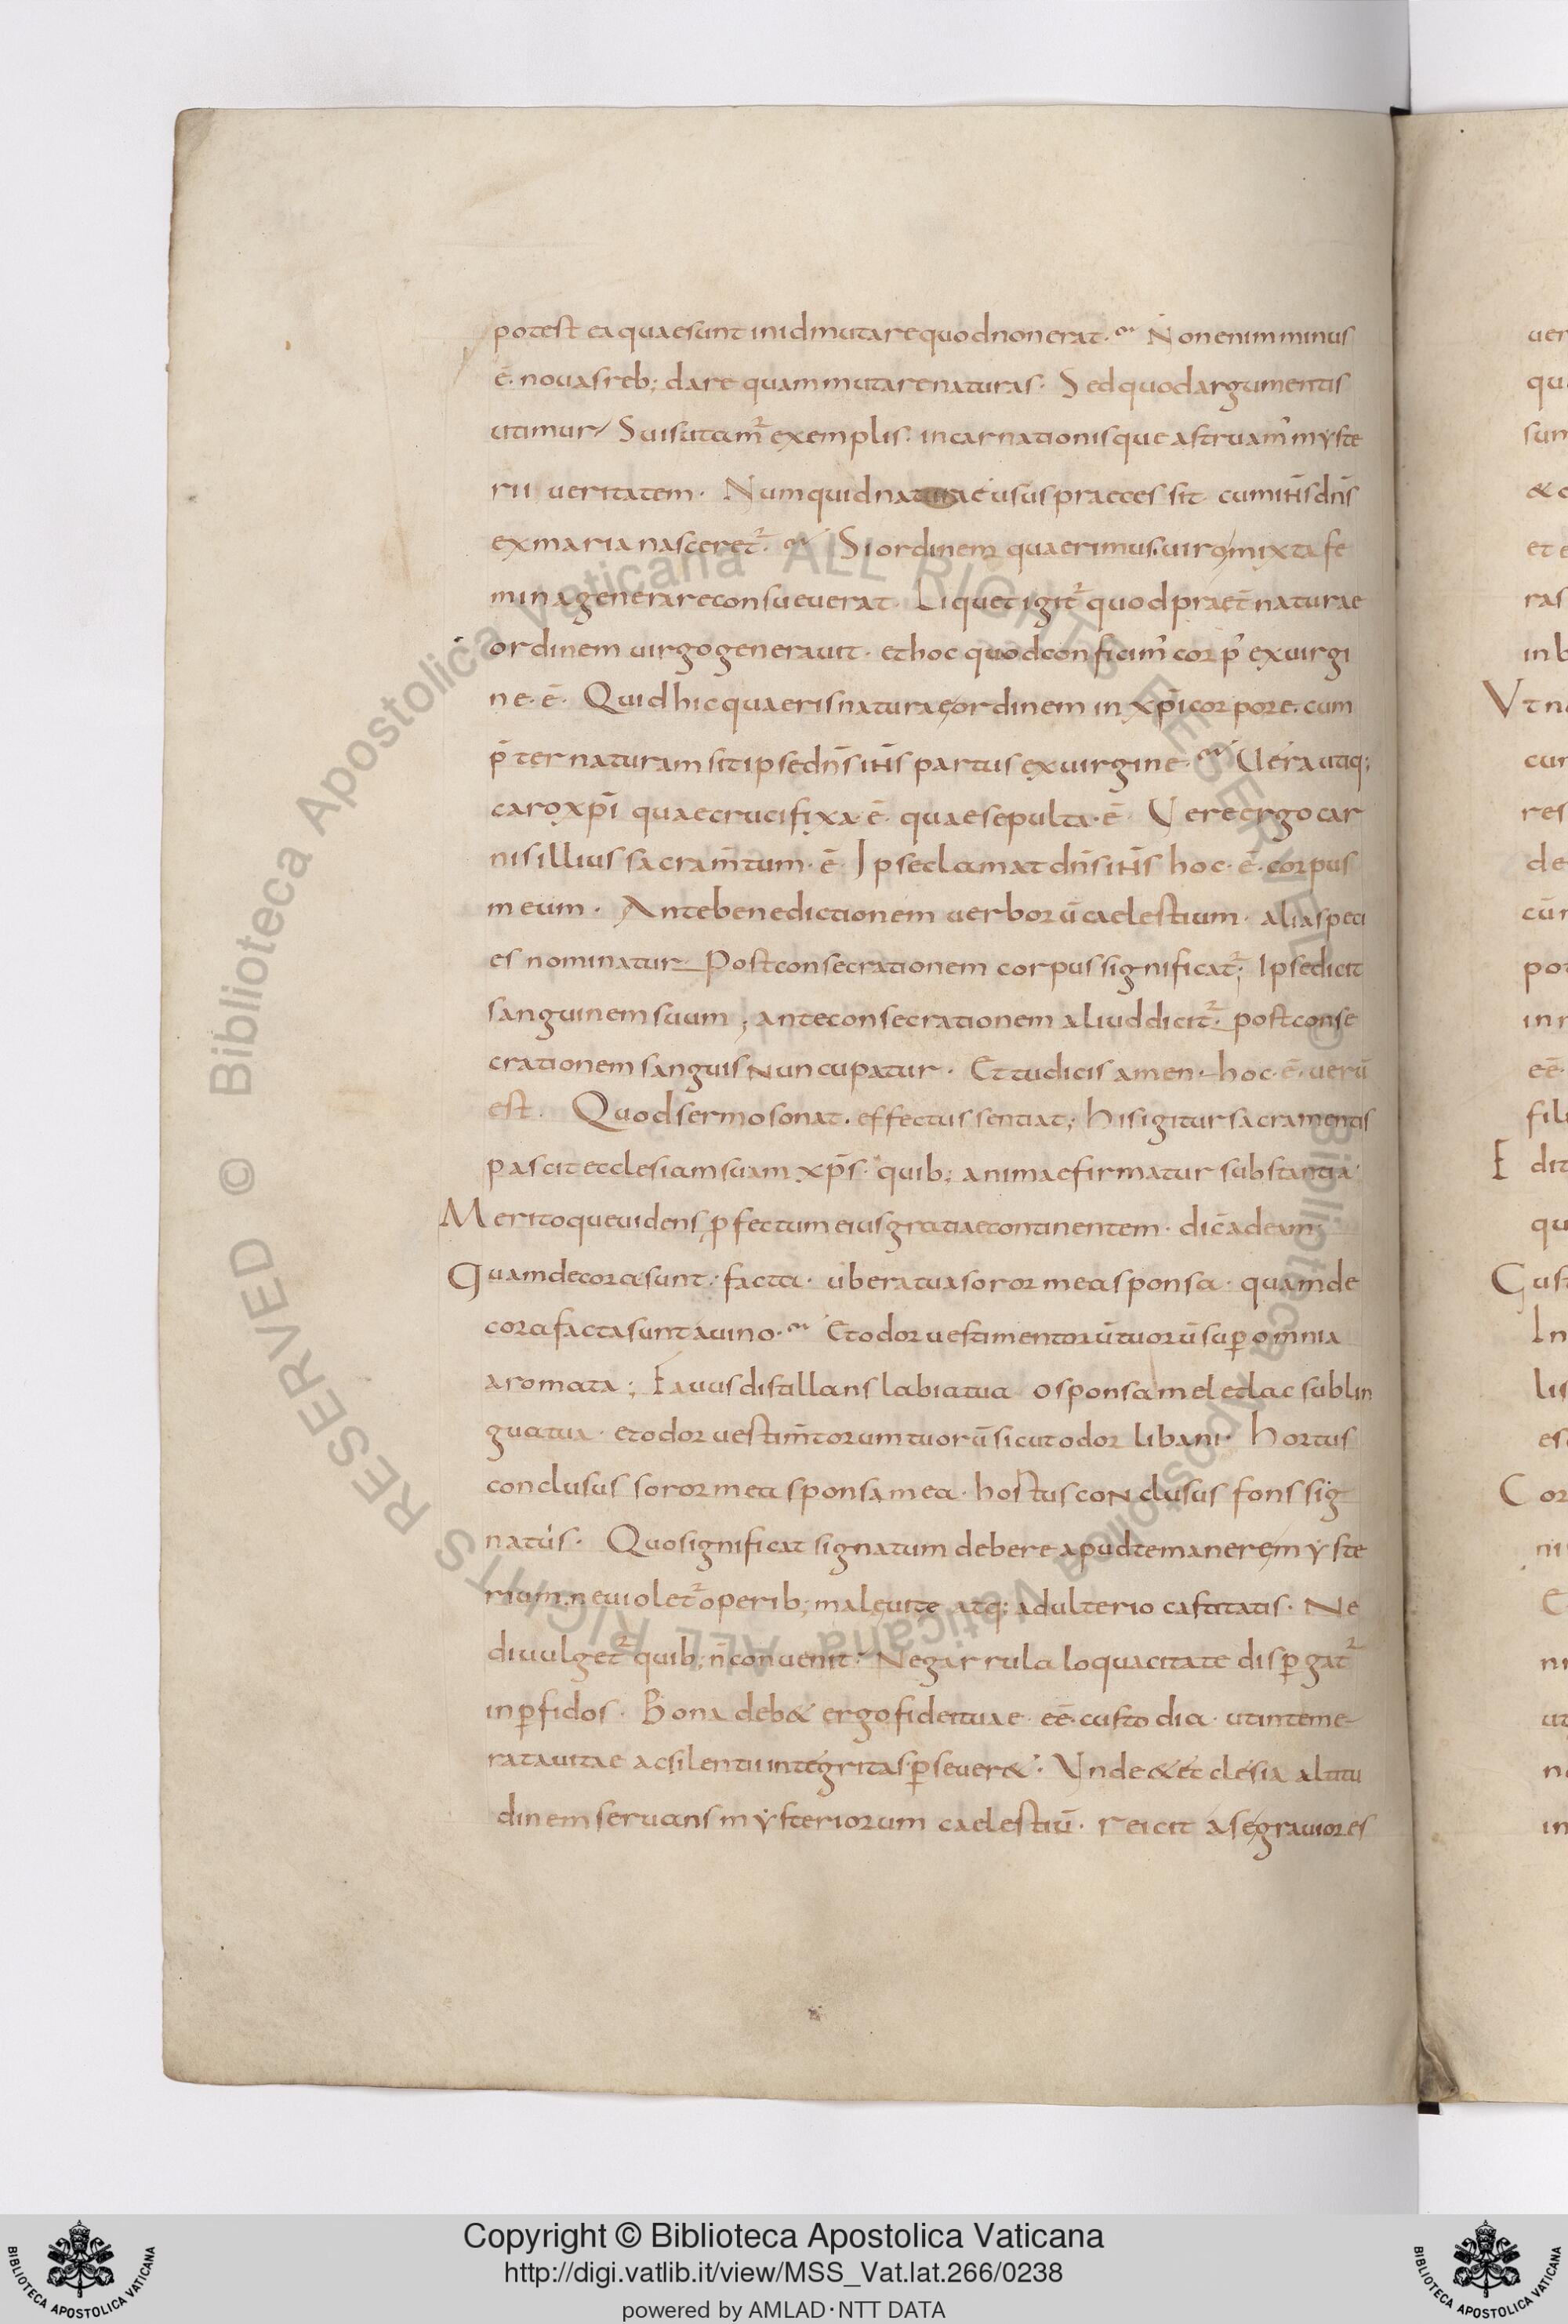 potest ea quae sunt in id mutare quod non erat. Non enim minus
ē. novas reb; dare quam mutare naturas. Sed quod argumentis
utimur Suis utam̄ exemplis. incarnationisque astruam᾽ myste
rii veritatem. Numquid naturae usus praecessit cum ih̄s dn̄s
ex maria nasceret᷑. Si ordinem quaerimus. viro mixta fe
mina generare consueverat. Liquet igit᷑ quod praet̄ naturae
ordinem virgo generavit. et hoc quod conficim᾽ corp᾽ ex virgi
ne. ē. Quid hic quaeris naturae ordinem in xp̄i corpore. cum
p̄ter naturam sit ipse dn̄s ih̄s partus ex virgine. Vera utiq;
caro xp̄i quae crucifixa. ē. quae sepulta. ē. Vere ergo car
nis illius sacram̄tum. ē. Ipse clamat dn̄s ih̄s hoc. ē. corpus
meum. Ante benedictionem verborū caelestium. alia speci
es nominatur Post consecrationem corpus significat᷑; Ipse dicit
sanguinem suum; ante consecrationem aliud dicit᷑. post conse
crationem sanguis nuncupatur. Et tu dicis amen. hoc. ē. verū
est. Quod sermo sonat. effectus sentiat; his igitur sacramentis
pascit ecclesiam suam xp̄s. quib; animae firmatur substantia
Meritoque videns ꝑfectum eius gratiae continentem. dic̄ ad eum;
Quam decora sunt. facta. ubera tua soror mea sponsa. quam de
cora facta sunt a vino. Et odor vestimentorū tuorū suꝑ omnia
aromata; Favus distillans labia tua o sponsa mel et lac sub lin
gua tua. et odor vestim̄torum tuorū sicut odor libani. hortus
conclusus soror mea sponsa mea. hostus conclusus fons sig
natus. Quo significat signatum debere apud te manere myste
rium ne violet᷑ operib; male vite atq; adulterio castitatis. Ne
divulget᷑ quib; n̄ convenit. Ne garrula loquacitate disꝑgat᷑
in ꝑfidos. Bona deb& ergo fidei tuae. eē. custodia. ut inteme
rata vitae ac silentii integritas ꝑsever&. Unde & ecclesia altitu
dinem servans mysteriorum caelestiū. reicit a se graviores
Copyright © Biblioteca Apostolica Vaticana
http://digi.vatlib.it/view/MSS_Vat.lat.266/0238
powered by AMLAD·NTT DATA